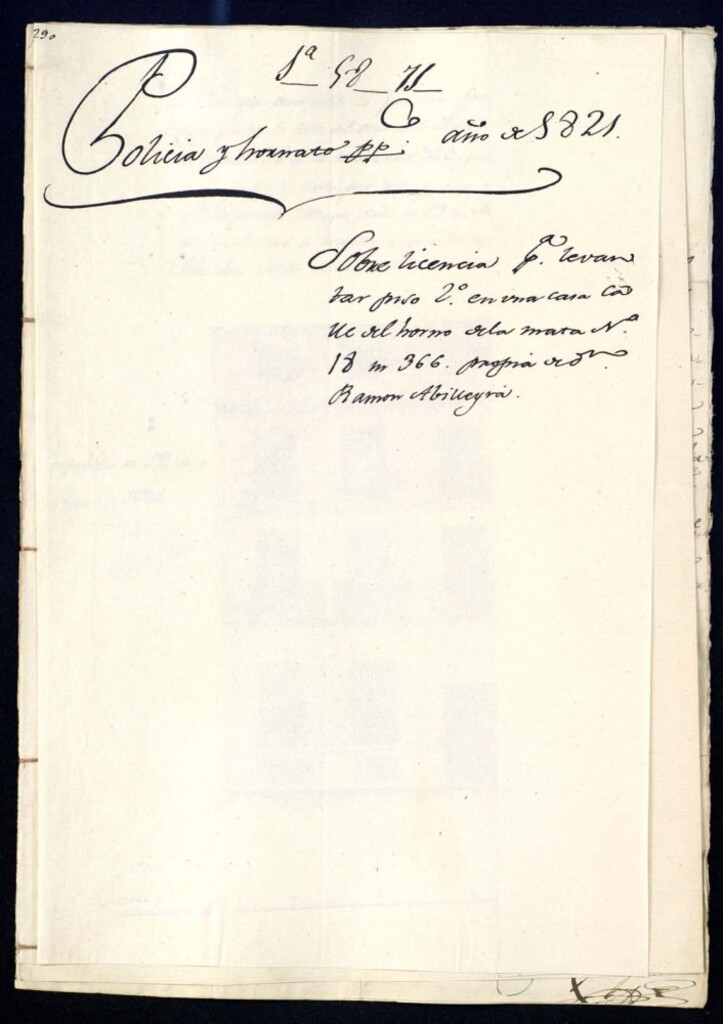 290
1ª 58 71
Policia y hornato pp.co año de 1821.
Sobre licencia pª. levan
tar piso 2º. en una casa ca
lle del horno de la mata Nº
18 m 366. propia de dn.
Ramon Abilleyra.